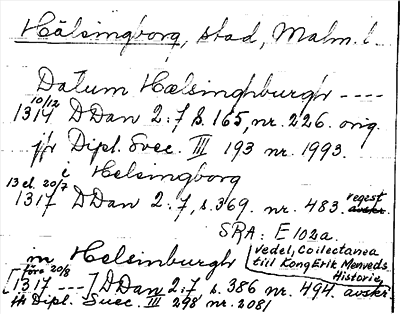 Hälsingborg, stad, Malm. l.
Datum Hælsinghburgh ----
10/12
1314 DDan 2:7 s. 165, nr. 226. orig.
jfr Dipl. Svec. III 193 nr. 1993.
i Helsingborg
13 el. 20/7
1317 DDan 2:7, s. 369. nr. 483. regest avskr.
SRA: E 102a.
Vedel, Collectanea
till Kong Erik Menveds
Historie
in Helsinburgh
före 20/8
[1317 ---] DDan 2:7 s. 386 nr. 494. avskr
jfr Dipl. Suec. III 298 nr. 2081